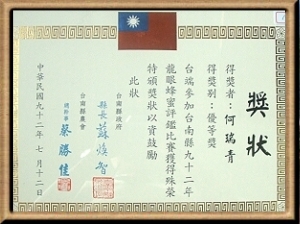 獎狀
得獎者：何瑞青
得獎別：優等獎
台端參加台南縣九十二年
龍眼蜂蜜評鑑比賽獲得殊榮
特頒獎狀以資鼓勵
此狀
台南縣政府
縣長 蘇煥智
台南縣農會
總幹事 蔡勝佳
中華民國九十二年七月十二日